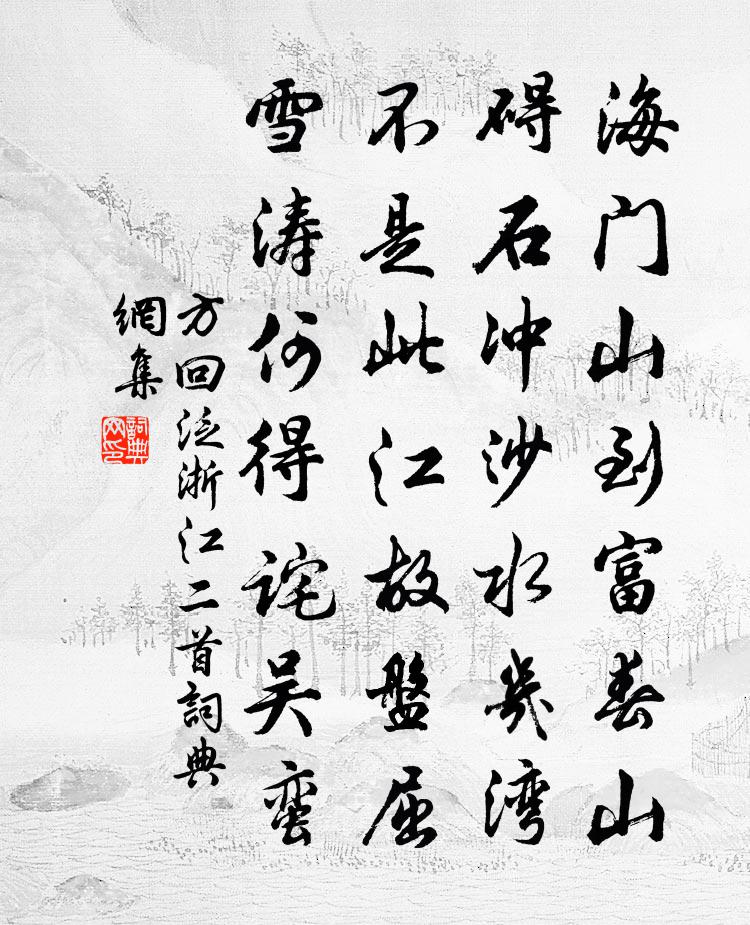 海门山到富春山
碍石冲沙水幾湾
不是此江故盤屈
雪涛何得诧吴蛮
方回泛浙江二首詞典
網集
詞典
网印